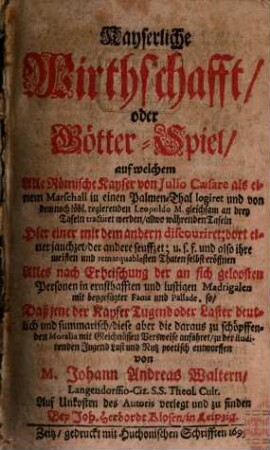 Kayserliche
Wirthschafft/
oder
Götter-Spiel/
auf welchem
Alle Römische Kayser von Julio Cæsare als ei-
nem Marschall in einen Palmen-Thal logiret und von
dem noch löbl. regierenden Leopoldo M. gleichsam an drey
Tafeln tractiret werden/ allwo währenden Tafeln
Hier einer mit dem andern discouriret; dort ei-
ner jauchzet/ der andere seuffzet; u. s. f. und also ihre
meisten und remarquablesten Thaten selbst eröffnen
Alles nach Erheischung der an sich geloosten
Personen in ernsthafften und lustigen Madrigalen
mit beygefügter Fama und Pallade, so/
Daß jene der Kayser Tugend oder Laster deut-
lich und summarisch/ diese aber die daraus zu schöpffen-
den Moralia mit Gleichnüssen Versweise anführet/ zu der studi-
renden Jugend Lust und Nutz poetisch entworffen
von
M. Johann Andreas Waltern/
Langendorffio-Cit. S.S. Theol. Cult.
Auf Unkosten des Autoris verlegt und zu finden
Bey Joh. Herbordt Klosen/ in Leipzig.
Zeitz/ gedruckt mit Huchonischen Schrifften